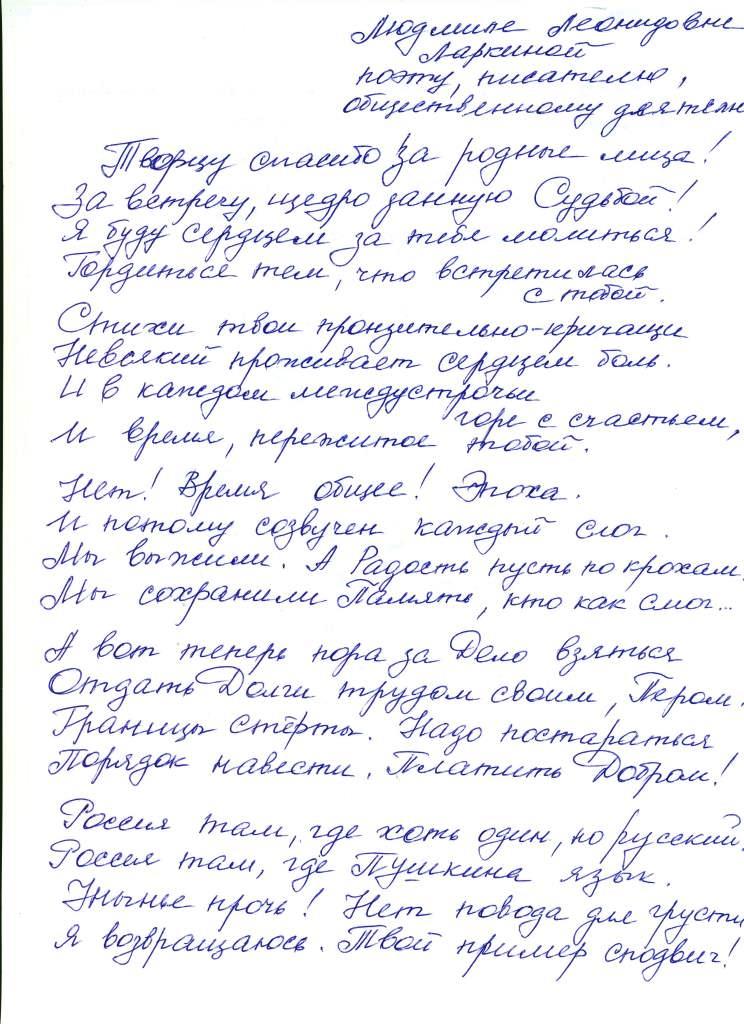 Людмиле Леонидовне
Ларкиной
поэту, писателю,
общественному деятелю
Творцу спасибо за родные лица!
За встречу, щедро данную Судьбой!
Я буду сердцем за тебя молиться!
Гордиться тем, что встретилась
с тобой.
Стихи твои пронзительно-кричащи
Невсякий проживает сердцем боль.
И в каждом междустрочьи
горе с счастьем,
И время, пережитое тобой.
Нет! Время общее! Эпоха.
И потому созвучен каждый слог.
Мы выжили. А Радость пусть по крохам.
Мы сохранили Память, кто как смог...
А вот теперь пора за Дело взяться
Отдать Долги трудом своим, Пером.
Границы стёрты. Надо постараться
Порядок навести. Платить Добром!
Россия там, где хоть один, но русский.
Россия там, где Пушкина язык.
Унынье прочь! Нет повода для грусти
Я возвращаюсь. Твой пример сподвиг!